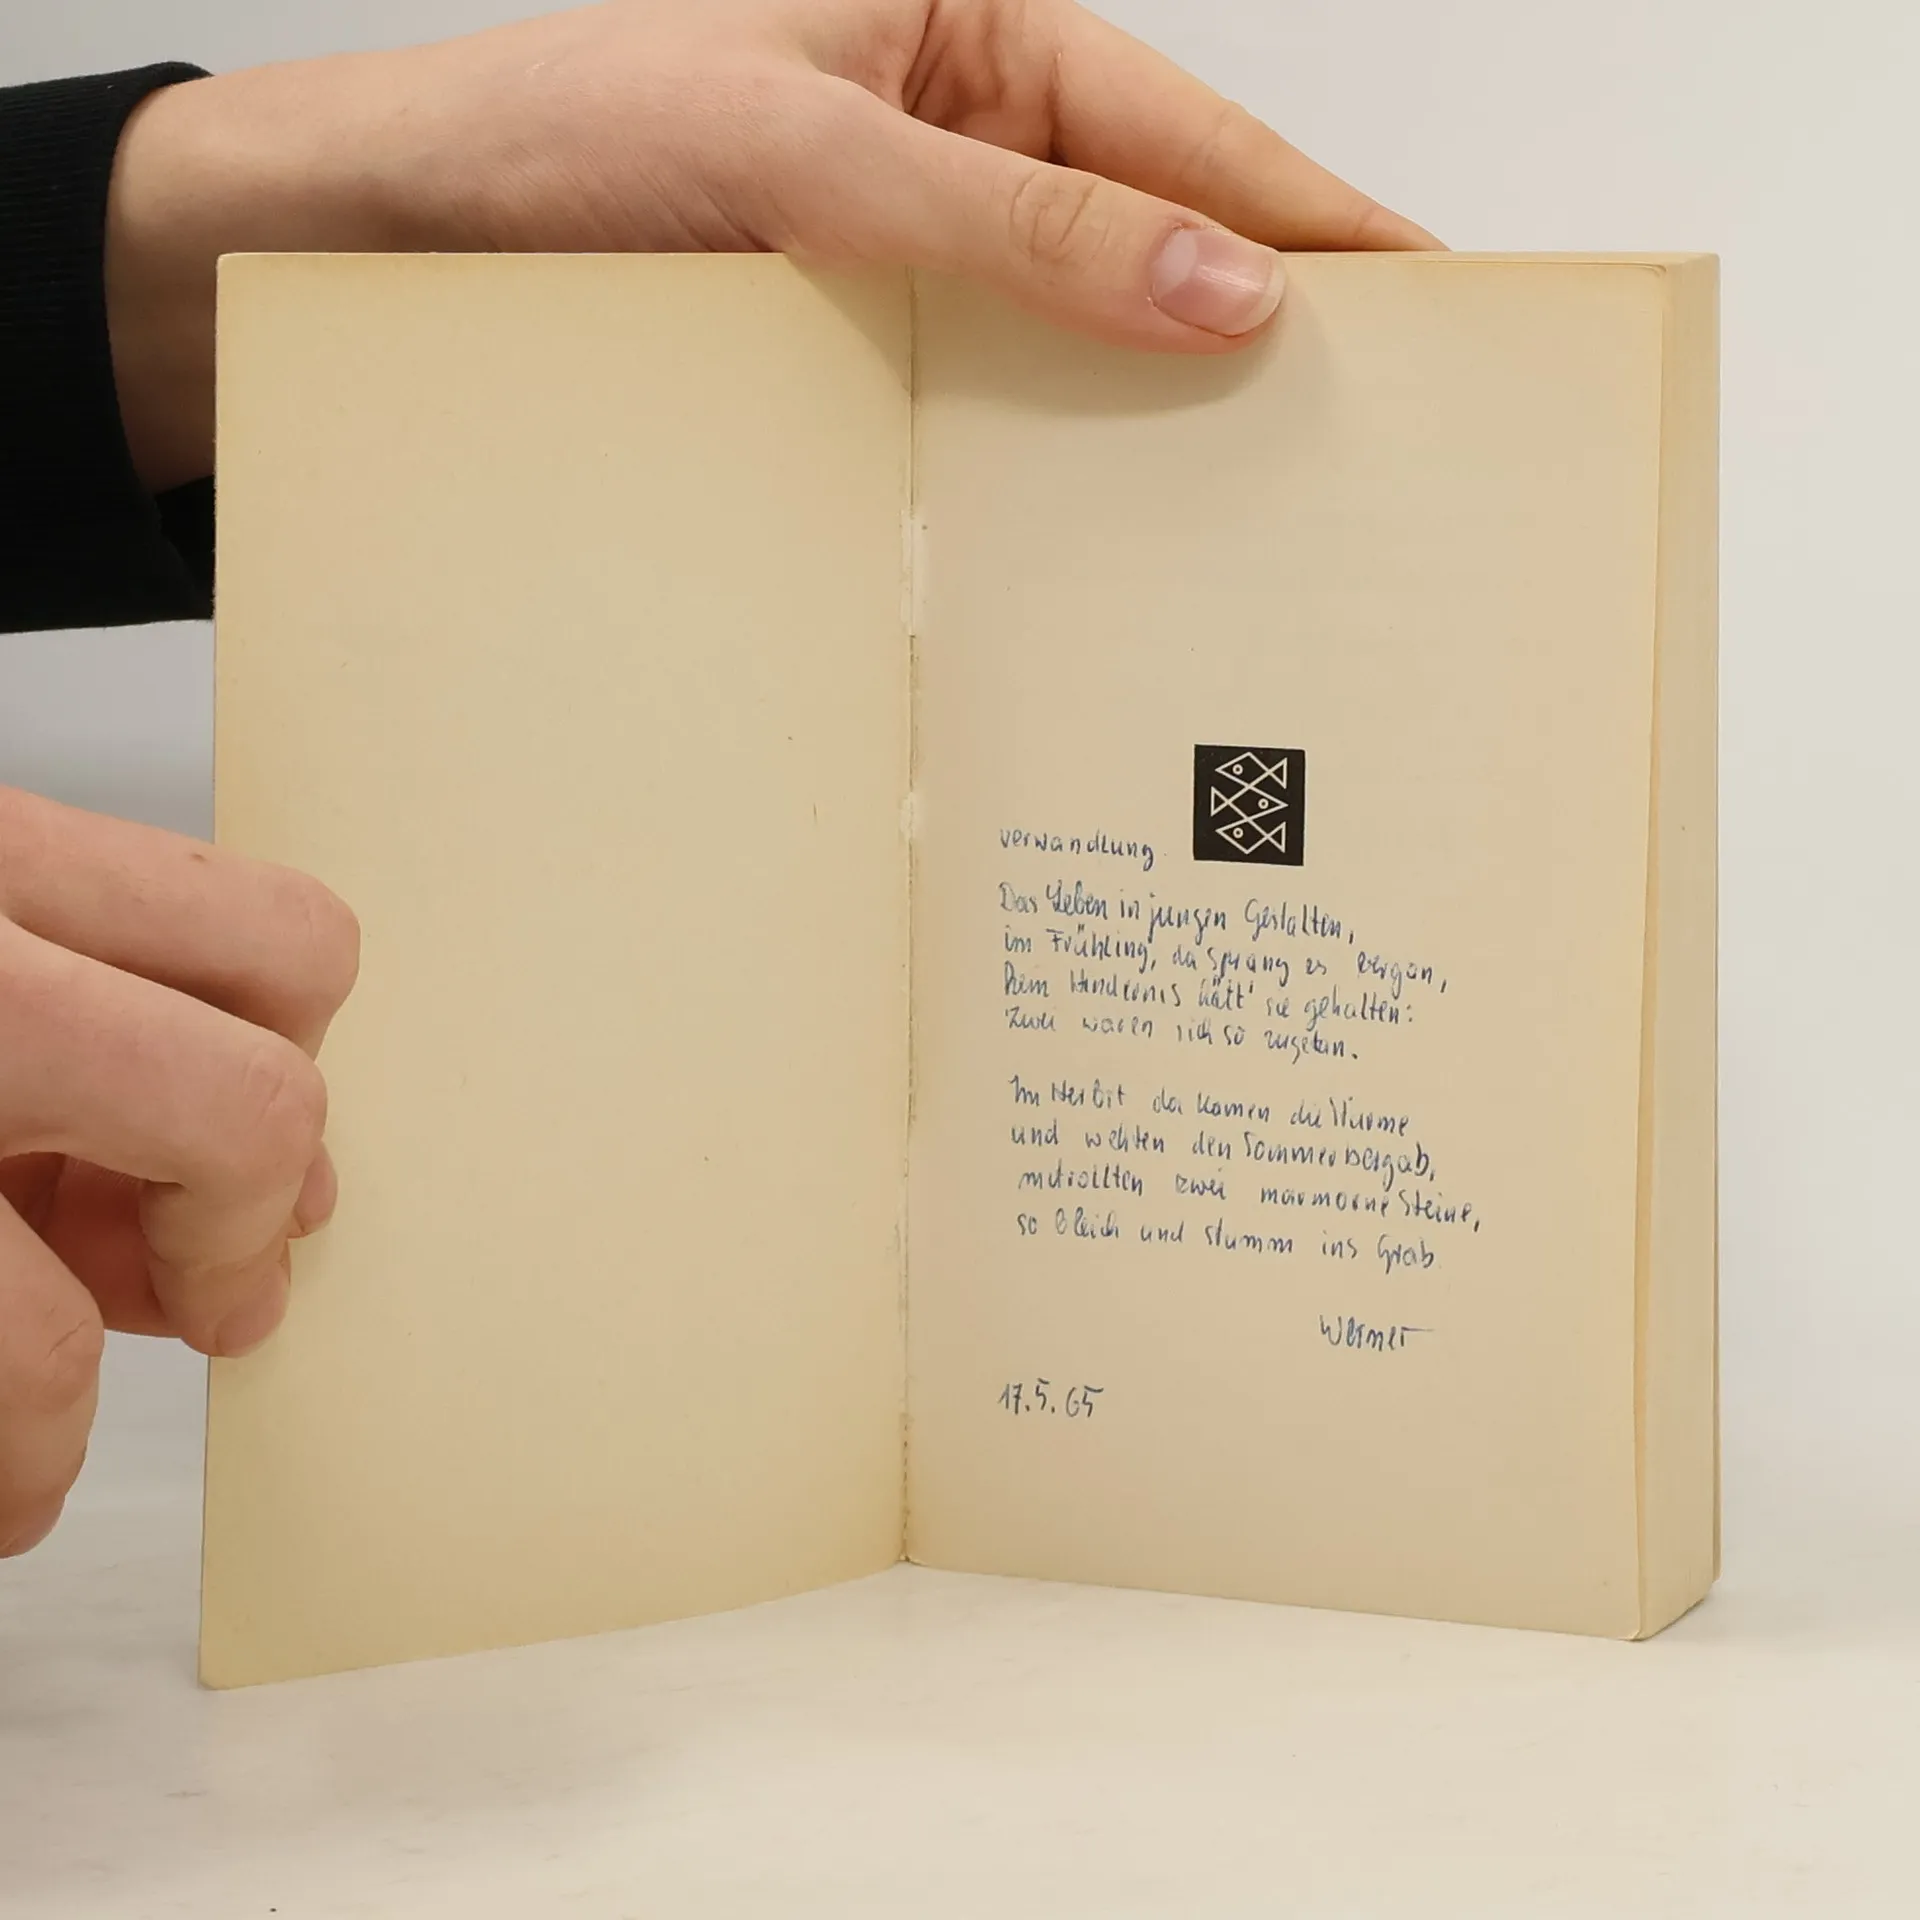 verwandlung.
Das Leben in jungen Gestalten,
im Frühling, da sprang es bergan,
kein Hindernis hätt' sie gehalten:
Zwei waren sich so zugetan.
Im Herbst da kamen die Stürme
und wehten den Sommer bergab,
mitrollten zwei marmorne Steine,
so bleich und stumm ins Grab.
Werner
17.5.65